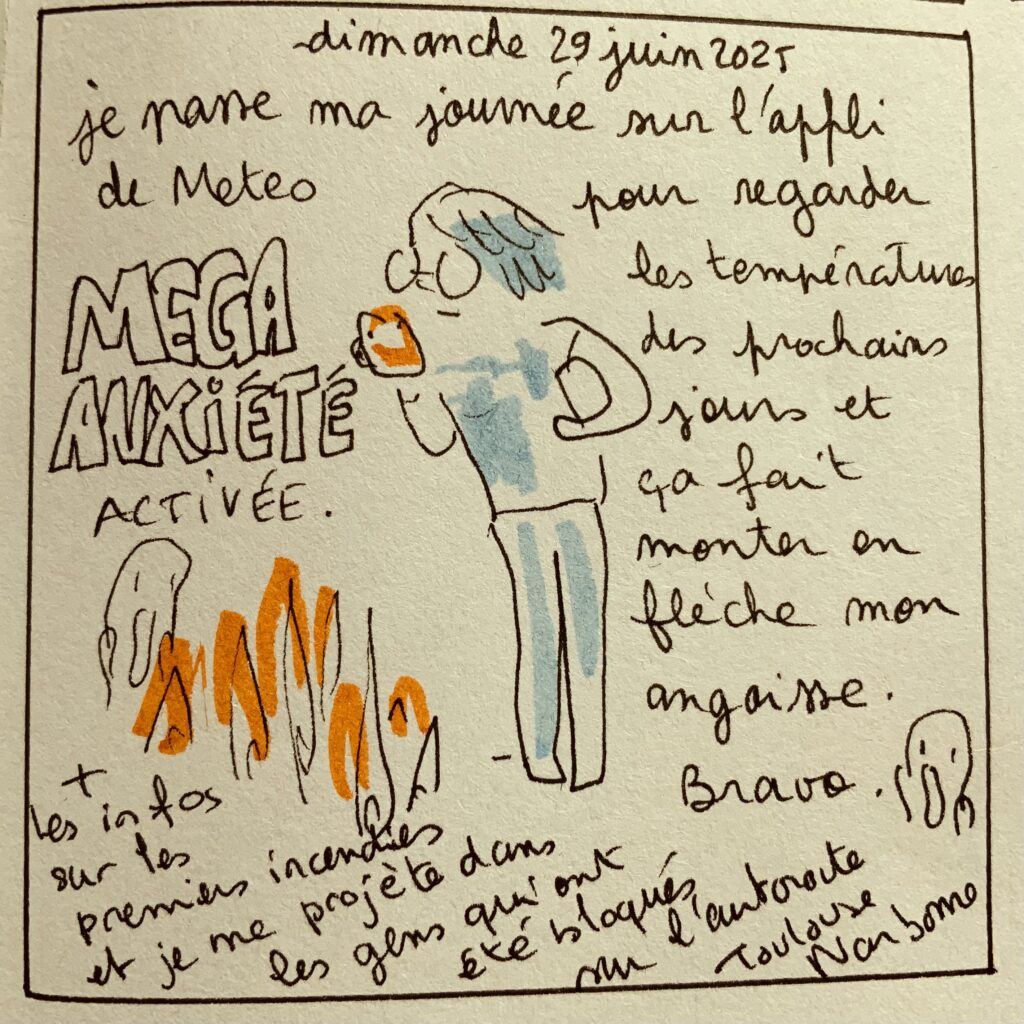 dimanche 29 juin 2025
je passe ma journée sur l'appli
de Meteo
pour regarder
les températures
des prochains
jours et
ça fait
monter en
flèche mon
angoisse.
Bravo.
MEGA
ANXIÉTÉ
ACTIVÉE.
+
les infos
sur les
premiers incendies
et je me projète dans
les gens qui ont
été bloqués
sur l'autoroute
Toulouse
Narbonne